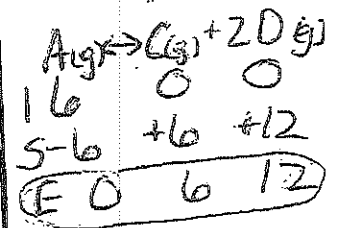 A(g) <-> C(g) + 2D(g)
I 6 0 0
S -6 +6 +12
E 0 6 12